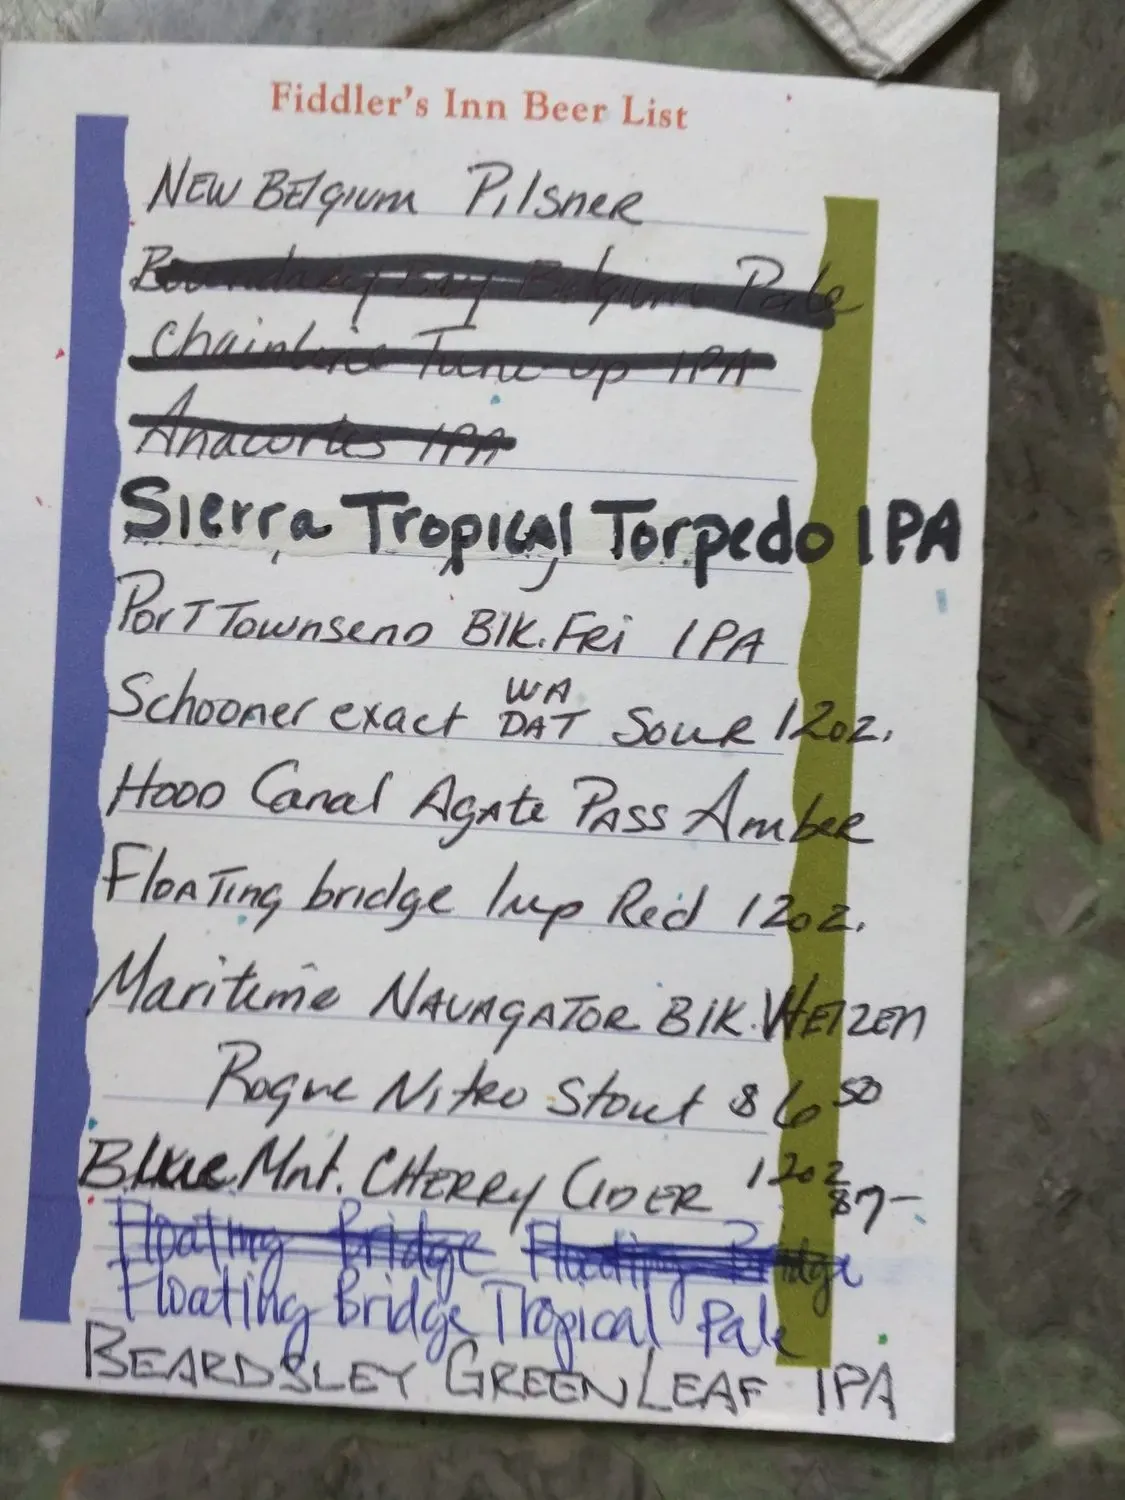 Fiddler's Inn Beer List
New Belgium Pilsner
Boundary Bay Belgium Pale
Chainline Tune up IPA
Anacortes IPA
Sierra Tropical Torpedo IPA
Port Townsend Blk. Fri IPA
Schooner exact WA DAT Sour 12oz.
Hood Canal Agate Pass Amber
Floating bridge 1up Red 12oz.
Maritime Navagator Blk. Heizen
Rogue Nitro Stout $6 50
Blue Mnt. Cherry Cider 12oz $7-
Floating Bridge Floating Bridge
Floating Bridge Tropical Pale
BEARDSLEY GREENLEAF IPA